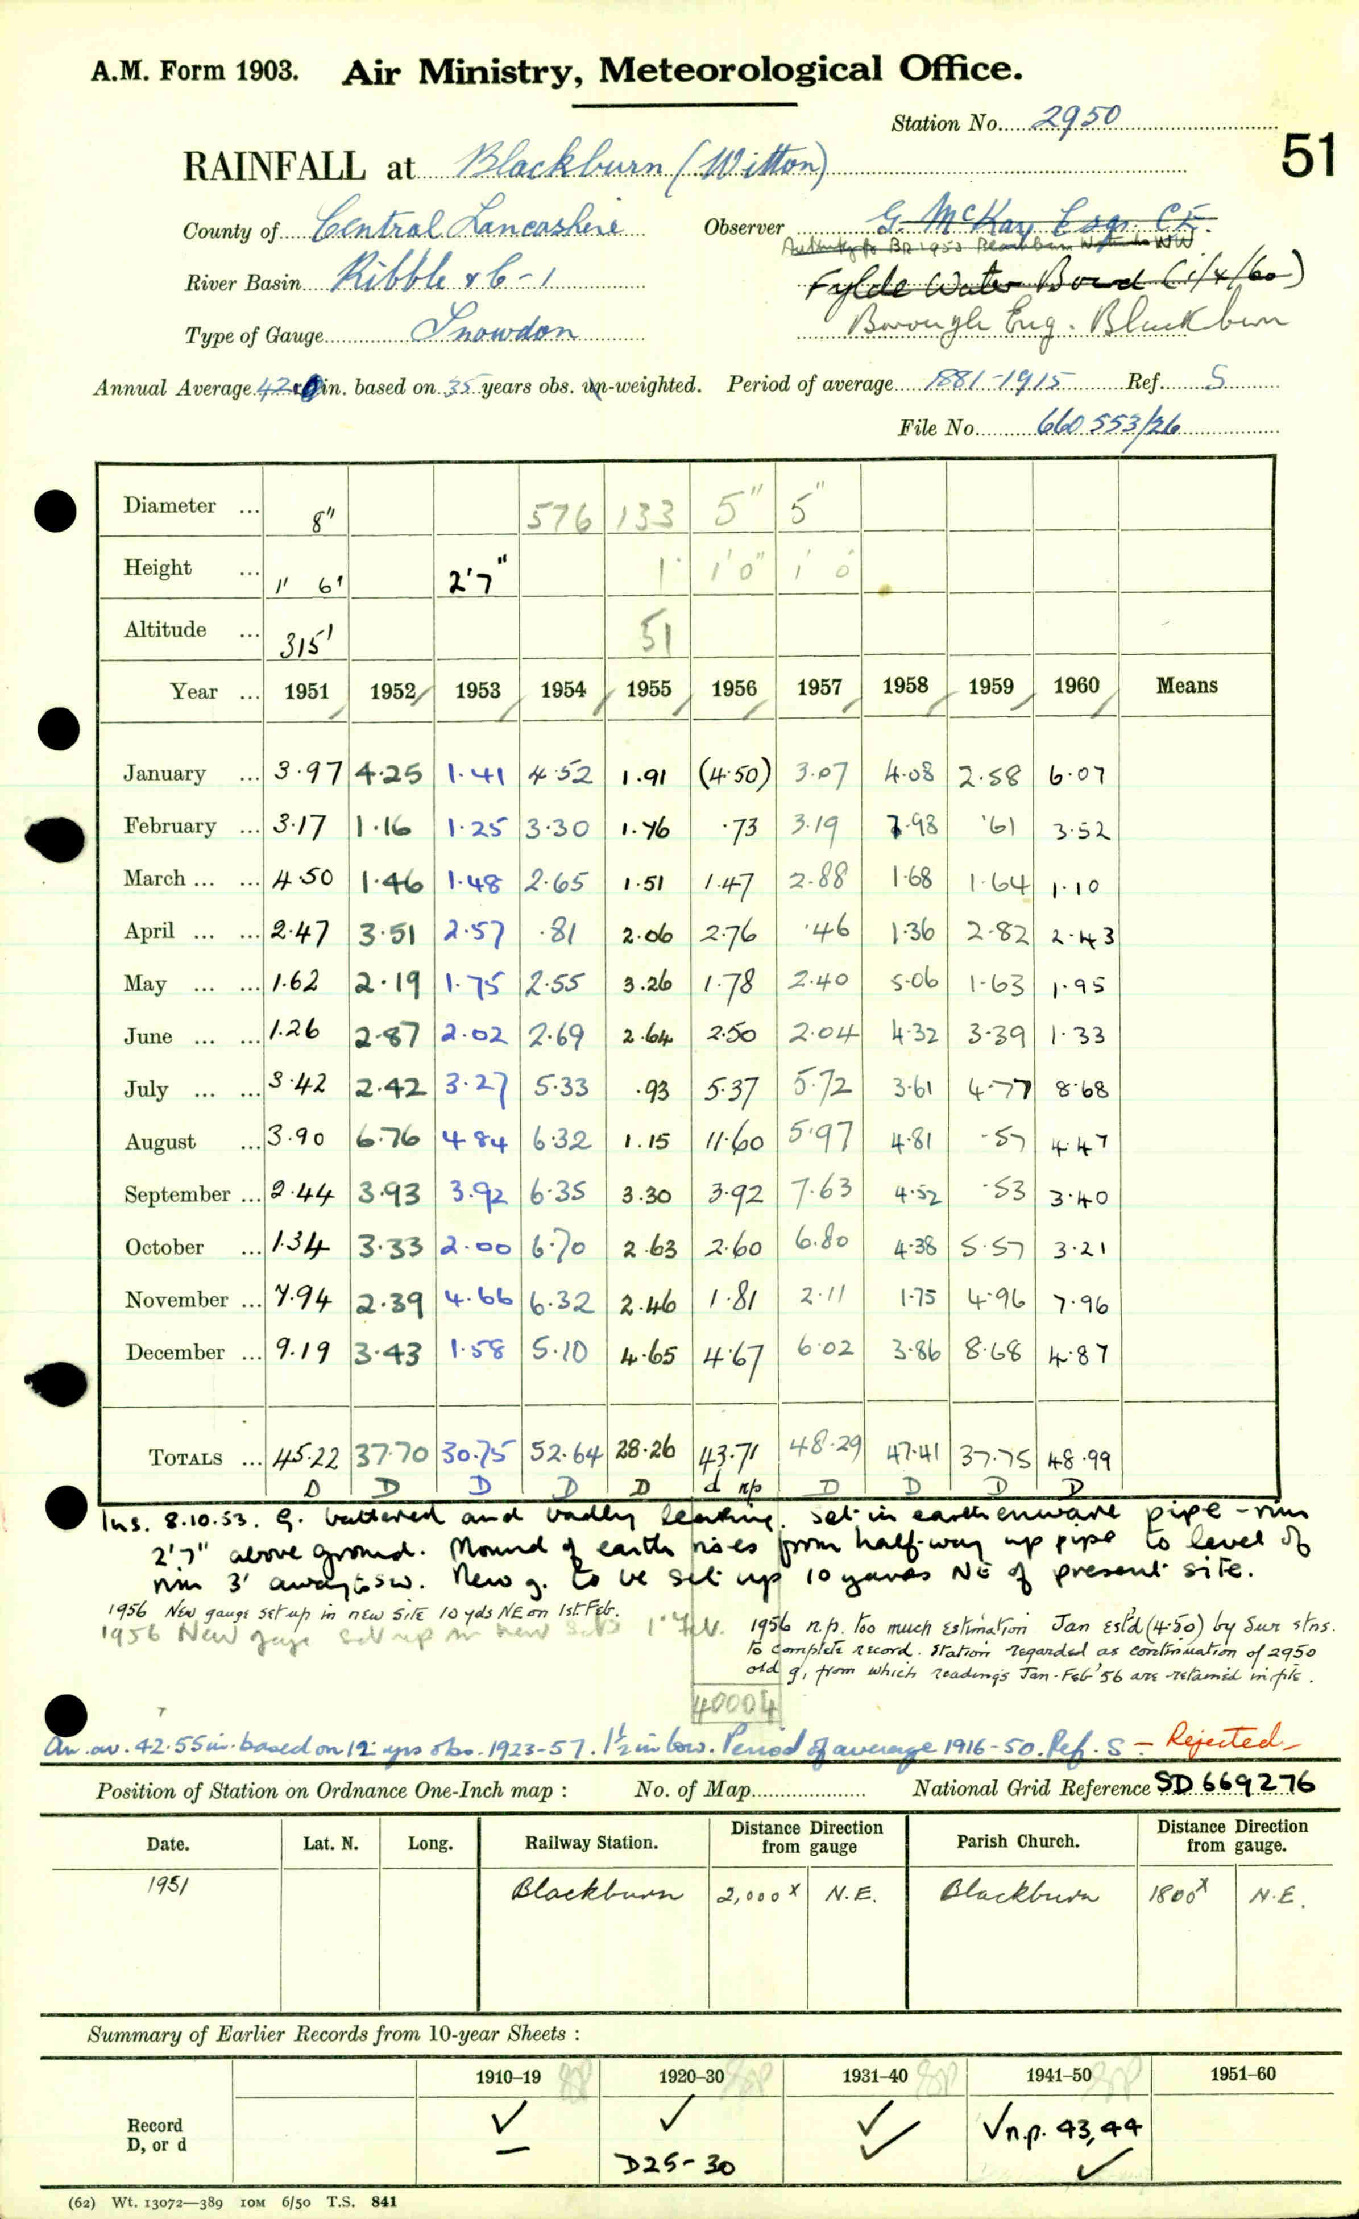 A.M. Form 1903. Air Ministry, Meteorological Office.
Station No. 2950
51
RAINFALL at Blackburn (Witton)
County of Central Lancashire Observer G. McKay Esq. C.E.
River Basin Ribble & 6-1 Fylde Water Board (1/4/60)
Type of Gauge Snowdon Borough Eng. Blackburn
Annual Average in. based on 35 years obs. un-weighted. Period of average 1881-1915 Ref. S
File No. 660553/26
Diameter ... 8" 576 133 5" 5"
Height ... 1' 6" 2'7" 1' 1'0" 1' 0"
Altitude ... 315' 51
Year ... 1951 1952 1953 1954 1955 1956 1957 1958 1959 1960 Means
January ... 3.97 4.25 1.41 4.52 1.91 (4.50) 3.07 4.08 2.58 6.07
February ... 3.17 1.16 1.25 3.30 1.76 .73 3.19 7.98 .61 3.52
March ... ... 4.50 1.46 1.48 2.65 1.51 1.47 2.88 1.68 1.64 1.10
April ... ... 2.47 3.51 2.57 .81 2.06 2.76 .46 1.36 2.82 2.43
May ... ... 1.62 2.19 1.75 2.55 3.26 1.78 2.40 5.06 1.63 1.95
June ... ... 1.26 2.87 2.02 2.69 2.64 2.50 2.04 4.32 3.39 1.33
July ... ... 3.42 2.42 3.27 5.33 .93 5.37 5.72 3.61 4.77 8.68
August ... 3.90 6.76 4.84 6.32 1.15 11.60 5.97 4.81 .57 4.47
September ... 2.44 3.93 3.92 6.35 3.30 3.92 7.63 4.52 .53 3.40
October ... 1.34 3.33 2.00 6.70 2.63 2.60 6.80 4.38 5.57 3.21
November ... 7.94 2.39 4.66 6.32 2.46 1.81 2.11 1.75 4.96 7.96
December ... 9.19 3.43 1.58 5.10 4.65 4.67 6.02 3.86 8.68 4.87
TOTALS ... 45.22 37.70 30.75 52.64 28.26 43.71 48.29 47.41 37.75 48.99
D D D D D d np D D D D
Ins. 8.10.53. G. battered and badly leaking. Set in earthenware pipe - rim
2'7" above ground. Mound of earth rises from half-way up pipe to level of
rim 3' away to SW. New g. to be set up 10 yards NE of present site.
1956 New gauge set up in new site 10 yds NE on 1st Feb.
1956 New gauge set up in new site 1st Feb.
1956 n.p. too much estimation Jan est'd (4.50) by Sur stns.
to complete record. Station regarded as continuation of 2950
old g, from which readings Jan-Feb '56 are retained in file.
40004
An. av. 42.55 in. based on 12 yrs obs. 1923-57. 1½ in low. Period of average 1916-50. Ref. S - Rejected
Position of Station on Ordnance One-Inch map : No. of Map National Grid Reference SD 669276
Date. Lat. N. Long. Railway Station. Distance Direction from gauge Parish Church. Distance Direction from gauge.
1951 Blackburn 2,000x N.E. Blackburn 1800x N.E.
Summary of Earlier Records from 10-year Sheets :
1910-19 1920-30 1931-40 1941-50 1951-60
Record ✓ ✓ ✓ ✓ n.p. 43, 44
D, or d — D25-30 ✓ ✓
(62) Wt. 13072—389 10M 6/50 T.S. 841